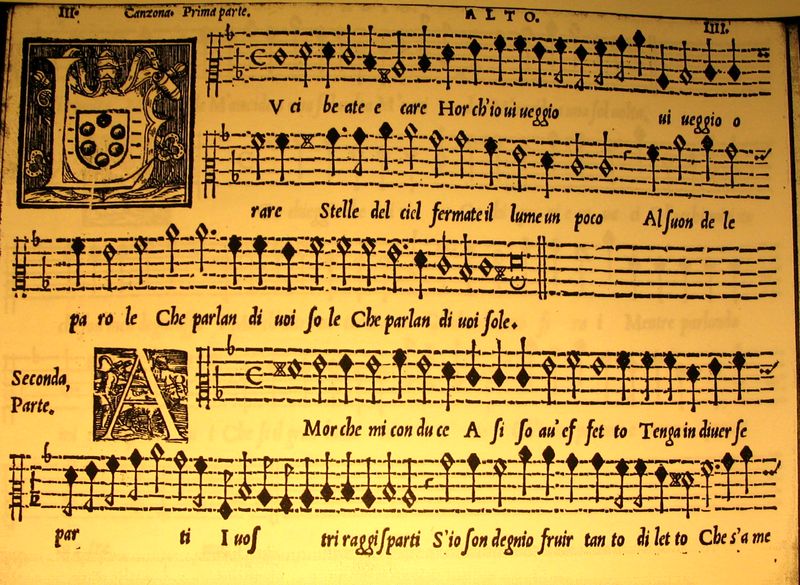 III. Canzona. Prima parte. ALTO. IIII.
LVci be ate e care Hor ch'io ui ueggio ui ueggio o
rare Stelle del ciel fermate il lume un poco Al suon de le
pa ro le Che parlan di uoi so le Che parlan di uoi sole.
Seconda,
Parte.
AMor che mi con du ce A si so au' ef fet to Tenga in diuer se
par ti I uos tri raggi sparti S'io son degnio fruir tan to di let to Che s'a me